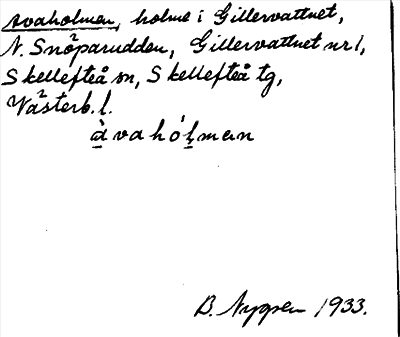 Avaholmen, holme i Gillervattnet,
N. Snöparudden, Gillervattnet nr 1,
Skellefteå sn, Skellefteå tg,
Västerb. l.
àvahólman
B. Nygren 1933.